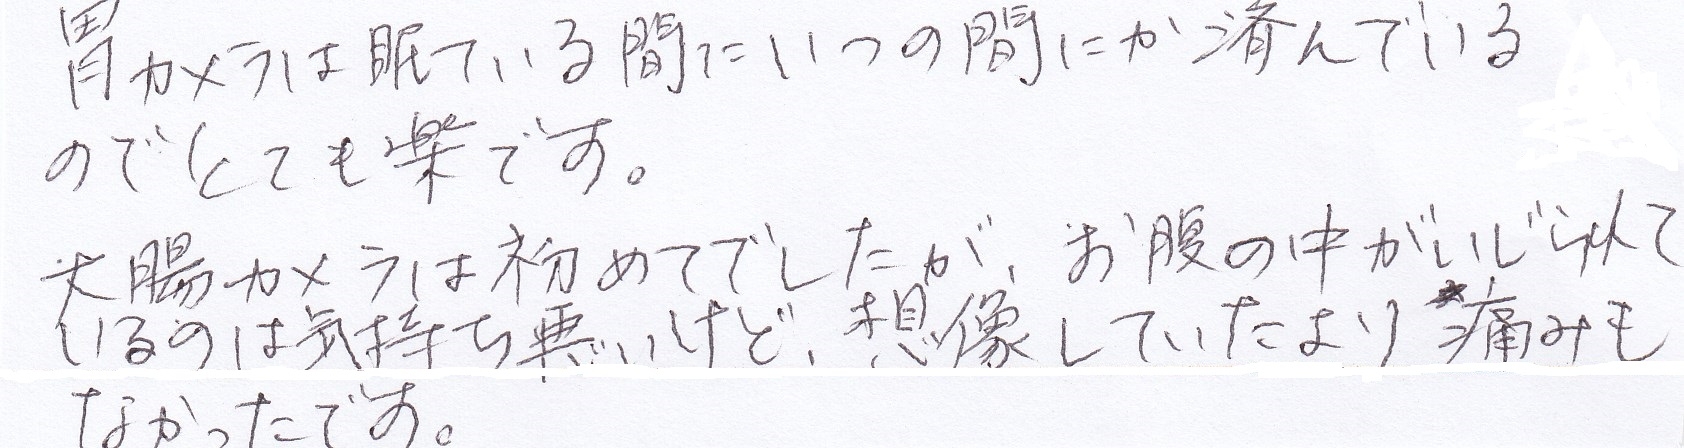 胃カメラは眠ている間にいつの間にか済んでいる
のでとても楽です。
大腸カメラは初めてでしたが、お腹の中がいじられて
いるのは気持ち悪いけど、想像していたより痛みも
なかったです。